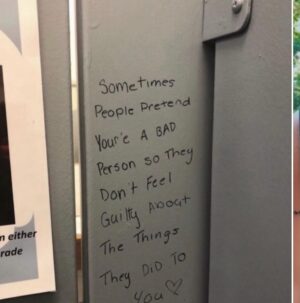 Sometimes
People Pretend
Your'e A BAD
Person so They
Don't Feel
Guilty About
The Things
They DiD To
You ♡
n either
rade